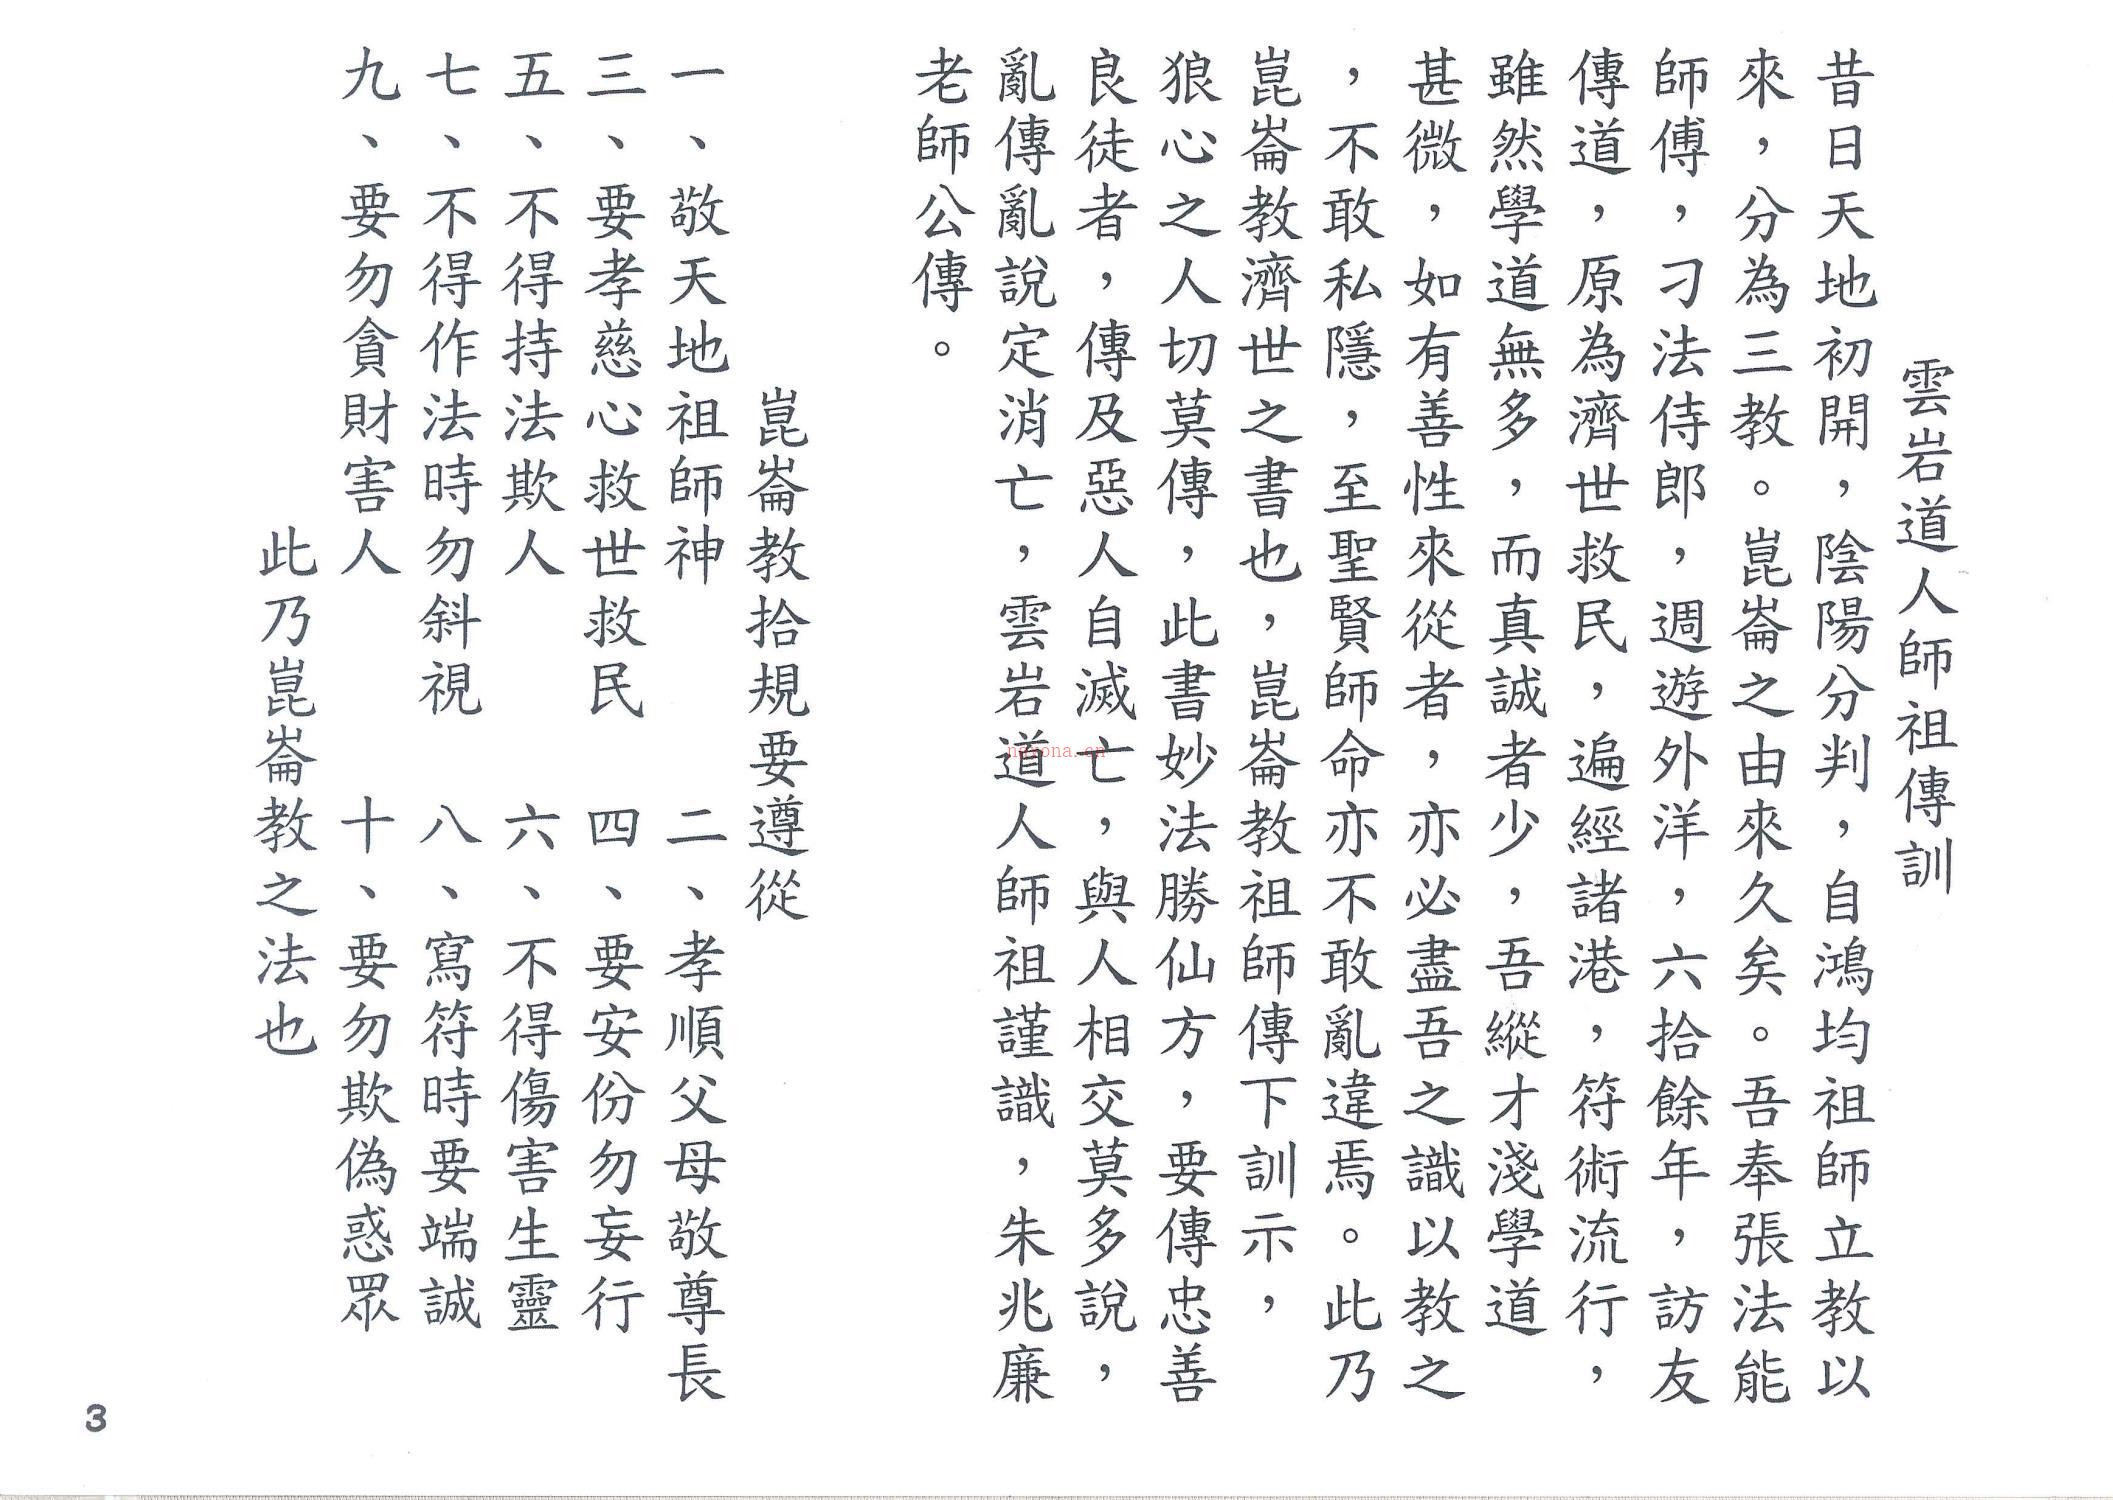 雲岩道人師祖傳訓
昔日天地初開，陰陽分判，自鴻均祖師立教以
來，分為三教。崑崙之由來久矣。吾奉張法能
師傅，刁法侍郎，週遊外洋，六拾餘年，訪友
傳道，原為濟世救民，遍經諸港，符術流行，
雖然學道無多，而真誠者少，吾縱才淺學道
甚微，如有善性來從者，亦必盡吾之識以教之
，不敢私隱，至聖賢師命亦不敢亂違焉。此乃
崑崙教濟世之書也，崑崙教祖師傳下訓示，
狼心之人切莫傳，此書妙法勝仙方，要傳忠善
良徒者，傳及惡人自滅亡，與人相交莫多說，
亂傳亂說定消亡，雲岩道人師祖謹識，朱兆廉
老師公傳。
崑崙教拾規要遵從
一、敬天地祖師神　　二、孝順父母敬尊長
三、要孝慈心救世救民　四、要安份勿妄行
五、不得持法欺人　　六、不得傷害生靈
七、不得作法時勿斜視　八、寫符時要端誠
九、要勿貪財害人　　十、要勿欺偽惑眾
此乃崑崙教之法也
3
nayona.cn